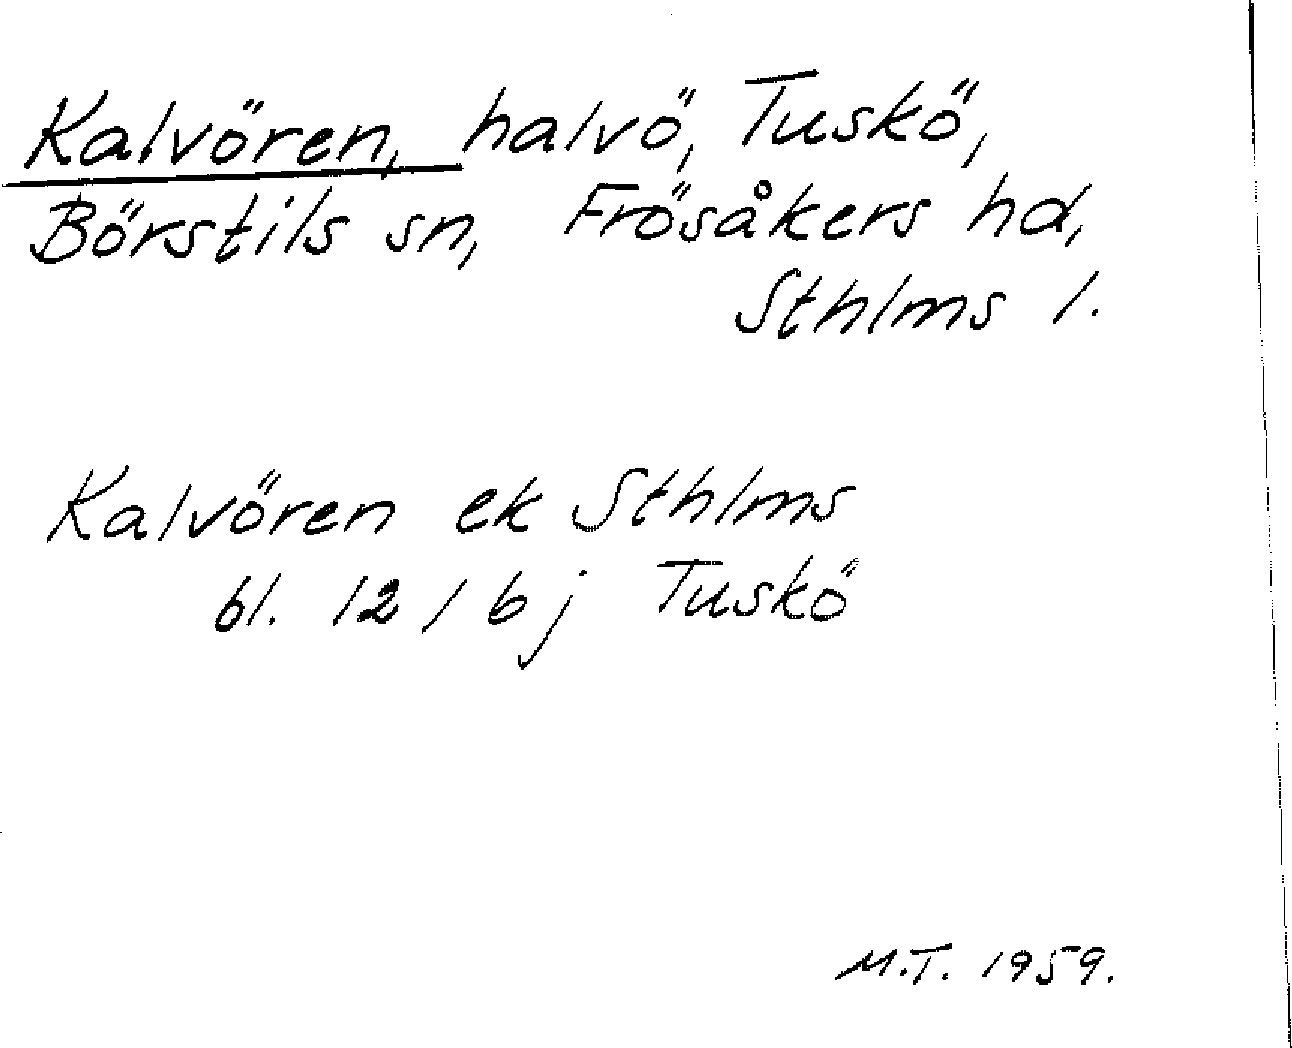 Kalvören, halvö, Tuskö,
Börstils sn, Frösåkers hd,
Sthlms l.
Kalvören ek Sthlms
bl. 12 / 6j Tuskö
M.T. 1959.